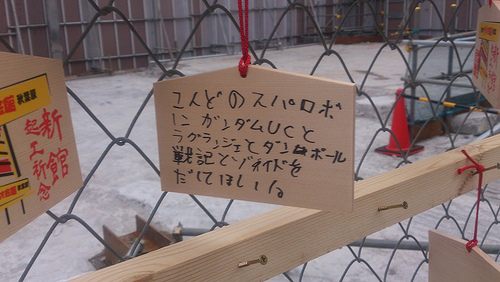 こんどのスパロボ
に ガンダムUCと
ラグランジェとダンボール
戦記とゾイドを
だしてほしいな
秋葉原
新館
起工祈念